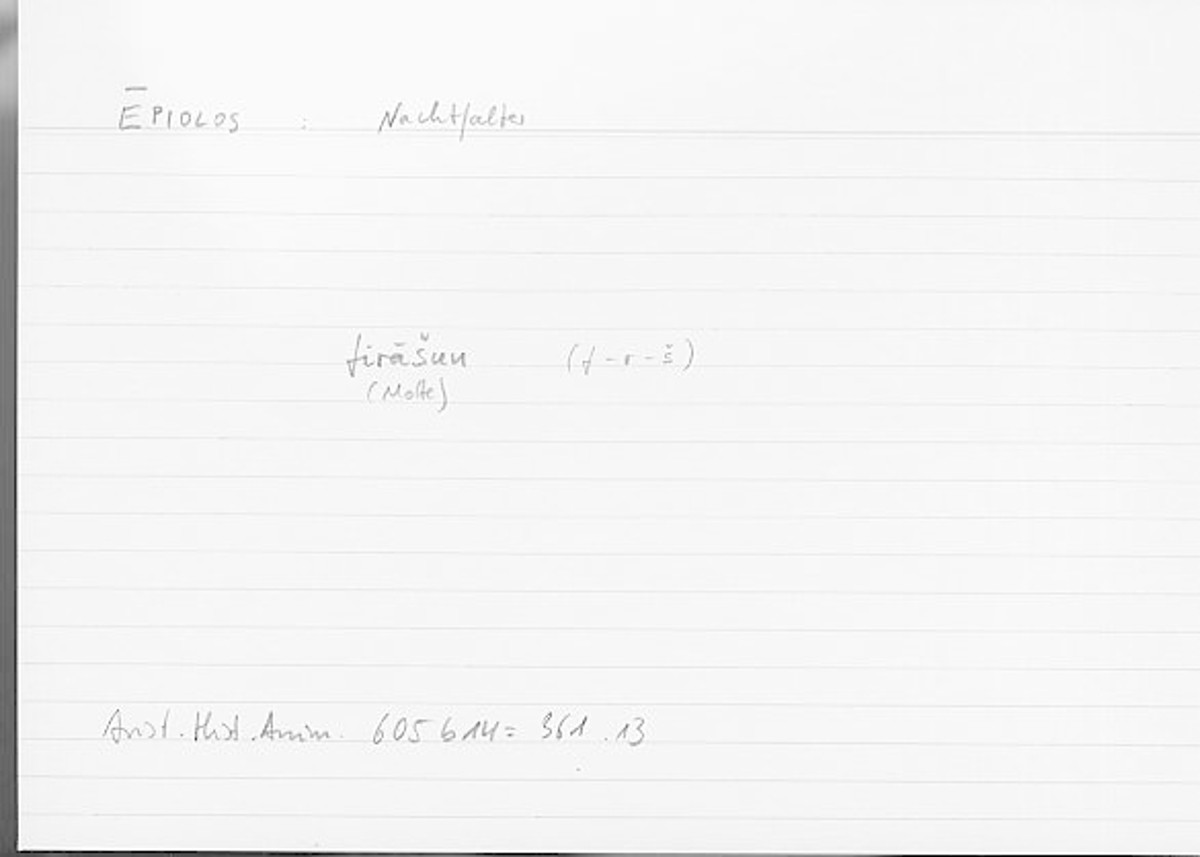 Ēpiolos : Nachtfalter
firāšun (f-r-š)
(Motte)
Arist. Hist. Anim. 605 b 14 = 361.13